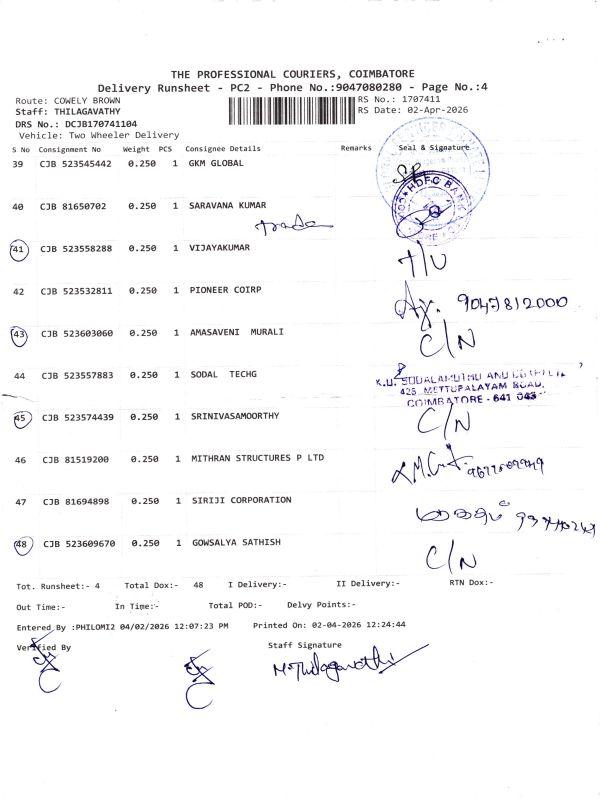 THE PROFESSIONAL COURIERS, COIMBATORE
Delivery Runsheet - PC2 - Phone No.:9047080280 - Page No.:4
Route: COWELY BROWN
RS No.: 1707411
Staff: THILAGAVATHY
RS Date: 02-Apr-2026
DRS No.: DCJB170741104
Vehicle: Two Wheeler Delivery
S No Consignment No Weight PCS Consignee Details Remarks Seal & Signature
39 CJB 523545442 0.250 1 GKM GLOBAL
HDFC BANK
40 CJB 81650702 0.250 1 SARAVANA KUMAR
41 CJB 523558288 0.250 1 VIJAYAKUMAR
T/U
42 CJB 523532811 0.250 1 PIONEER COIRP
9047812000
43 CJB 523603060 0.250 1 AMASAVENI MURALI
C/N
44 CJB 523557883 0.250 1 SODAL TECHG
K.U. SODALAMUTHU AND
METTUPALAYAM ROAD,
COIMBATORE - 641 043
45 CJB 523574439 0.250 1 SRINIVASAMOORTHY
C/N
46 CJB 81519200 0.250 1 MITHRAN STRUCTURES P LTD
47 CJB 81694898 0.250 1 SIRIJI CORPORATION
48 CJB 523609670 0.250 1 GOWSALYA SATHISH
C/N
Tot. Runsheet:- 4 Total Dox:- 48 I Delivery:- II Delivery:- RTN Dox:-
Out Time:- In Time:- Total POD:- Delvy Points:-
Entered By :PHILOMI2 04/02/2026 12:07:23 PM Printed On: 02-04-2026 12:24:44
Verified By Staff Signature
M.Thilagavathi